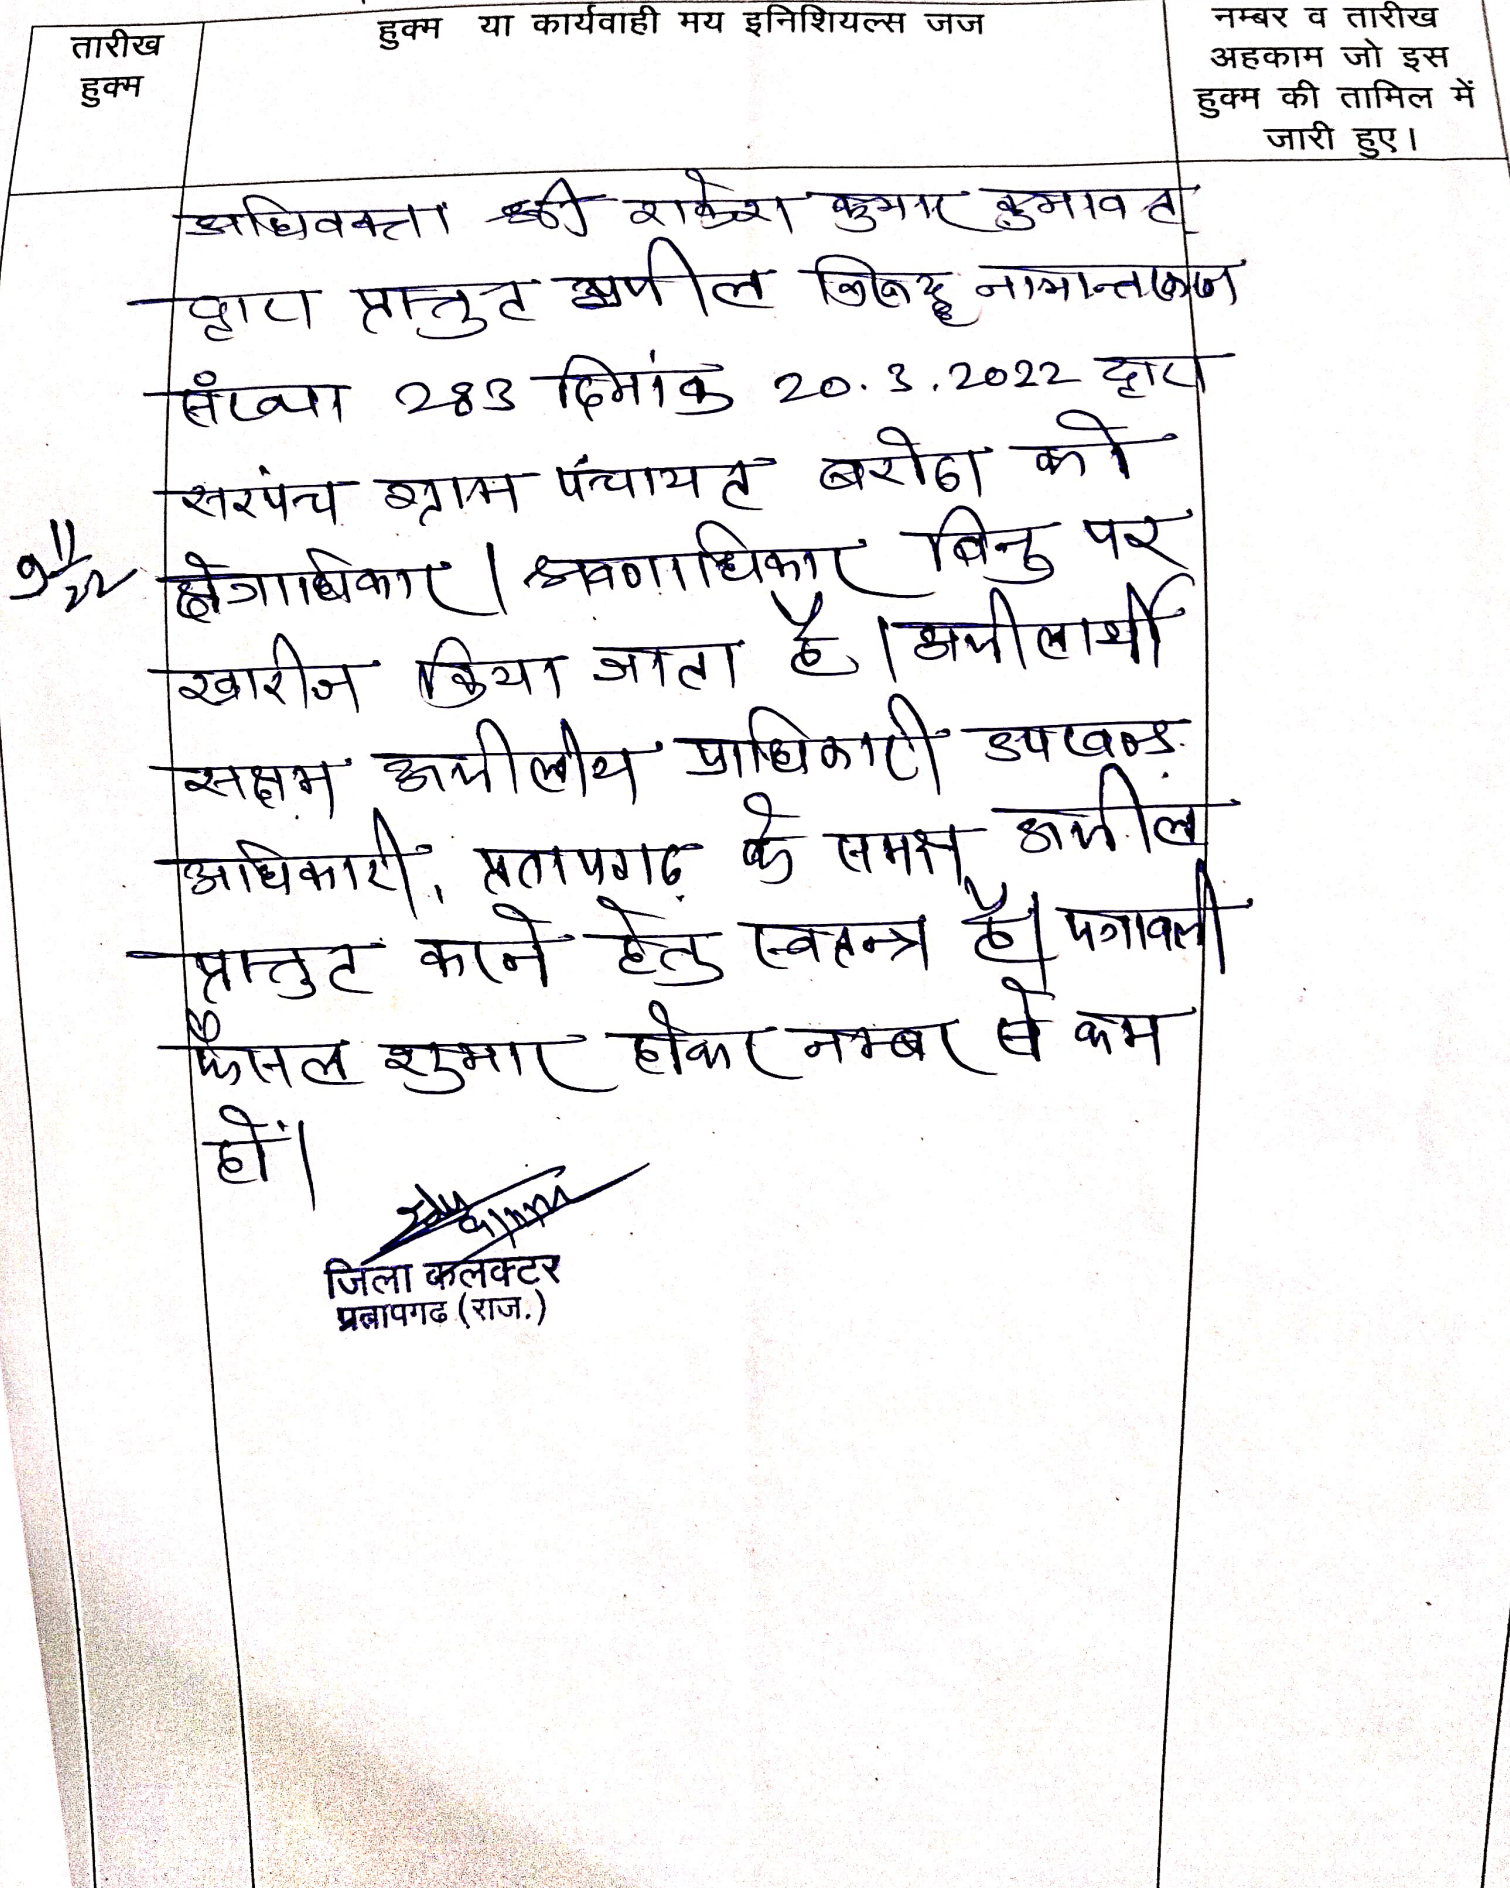 तारीख
हुक्म
हुक्म या कार्यवाही मय इनिशियल्स जज
नम्बर व तारीख
अहकाम जो इस
हुक्म की तामिल में
जारी हुए।
अधिवक्ता श्री राकेश कुमार कुमावत
द्वारा प्रस्तुत अपील विरूद्ध नामान्तकरण
संख्या 283 दिनांक 20.3.2022 द्वारा
सरपंच ग्राम पंचायत बरोठा को
9/11/22
क्षेत्राधिकार/श्रवणाधिकार बिन्दु पर
खारीज किया जाता है। अपीलार्थी
सक्षम अपीलीय प्राधिकारी उपखण्ड
अधिकारी, प्रतापगढ के समक्ष अपील
प्रस्तुत करने हेतु स्वतन्त्र है। पत्रावली
फैसल शुमार होकर नम्बर से कम
हो।
जिला कलक्टर
प्रतापगढ (राज.)